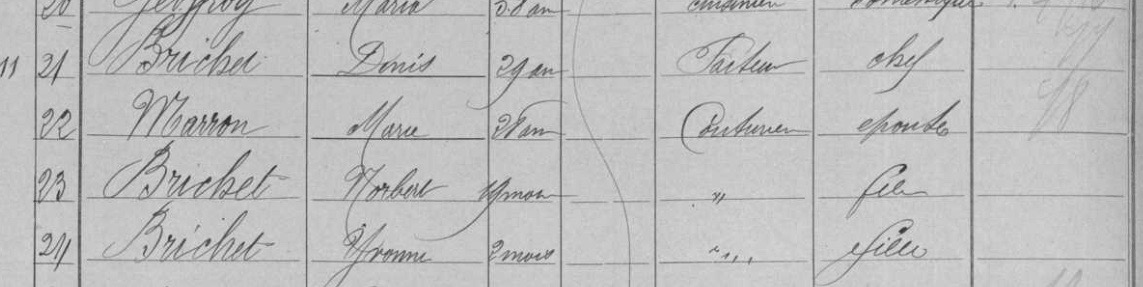 20 Maria 58 an cuisinier domestique
11 21 Brichet Denis 29 an Facteur chef
22 Marron Marie 28 an Couturière épouse
23 Brichet Norbert 19 mois " fils
24 Brichet Yvonne 2 mois " fille